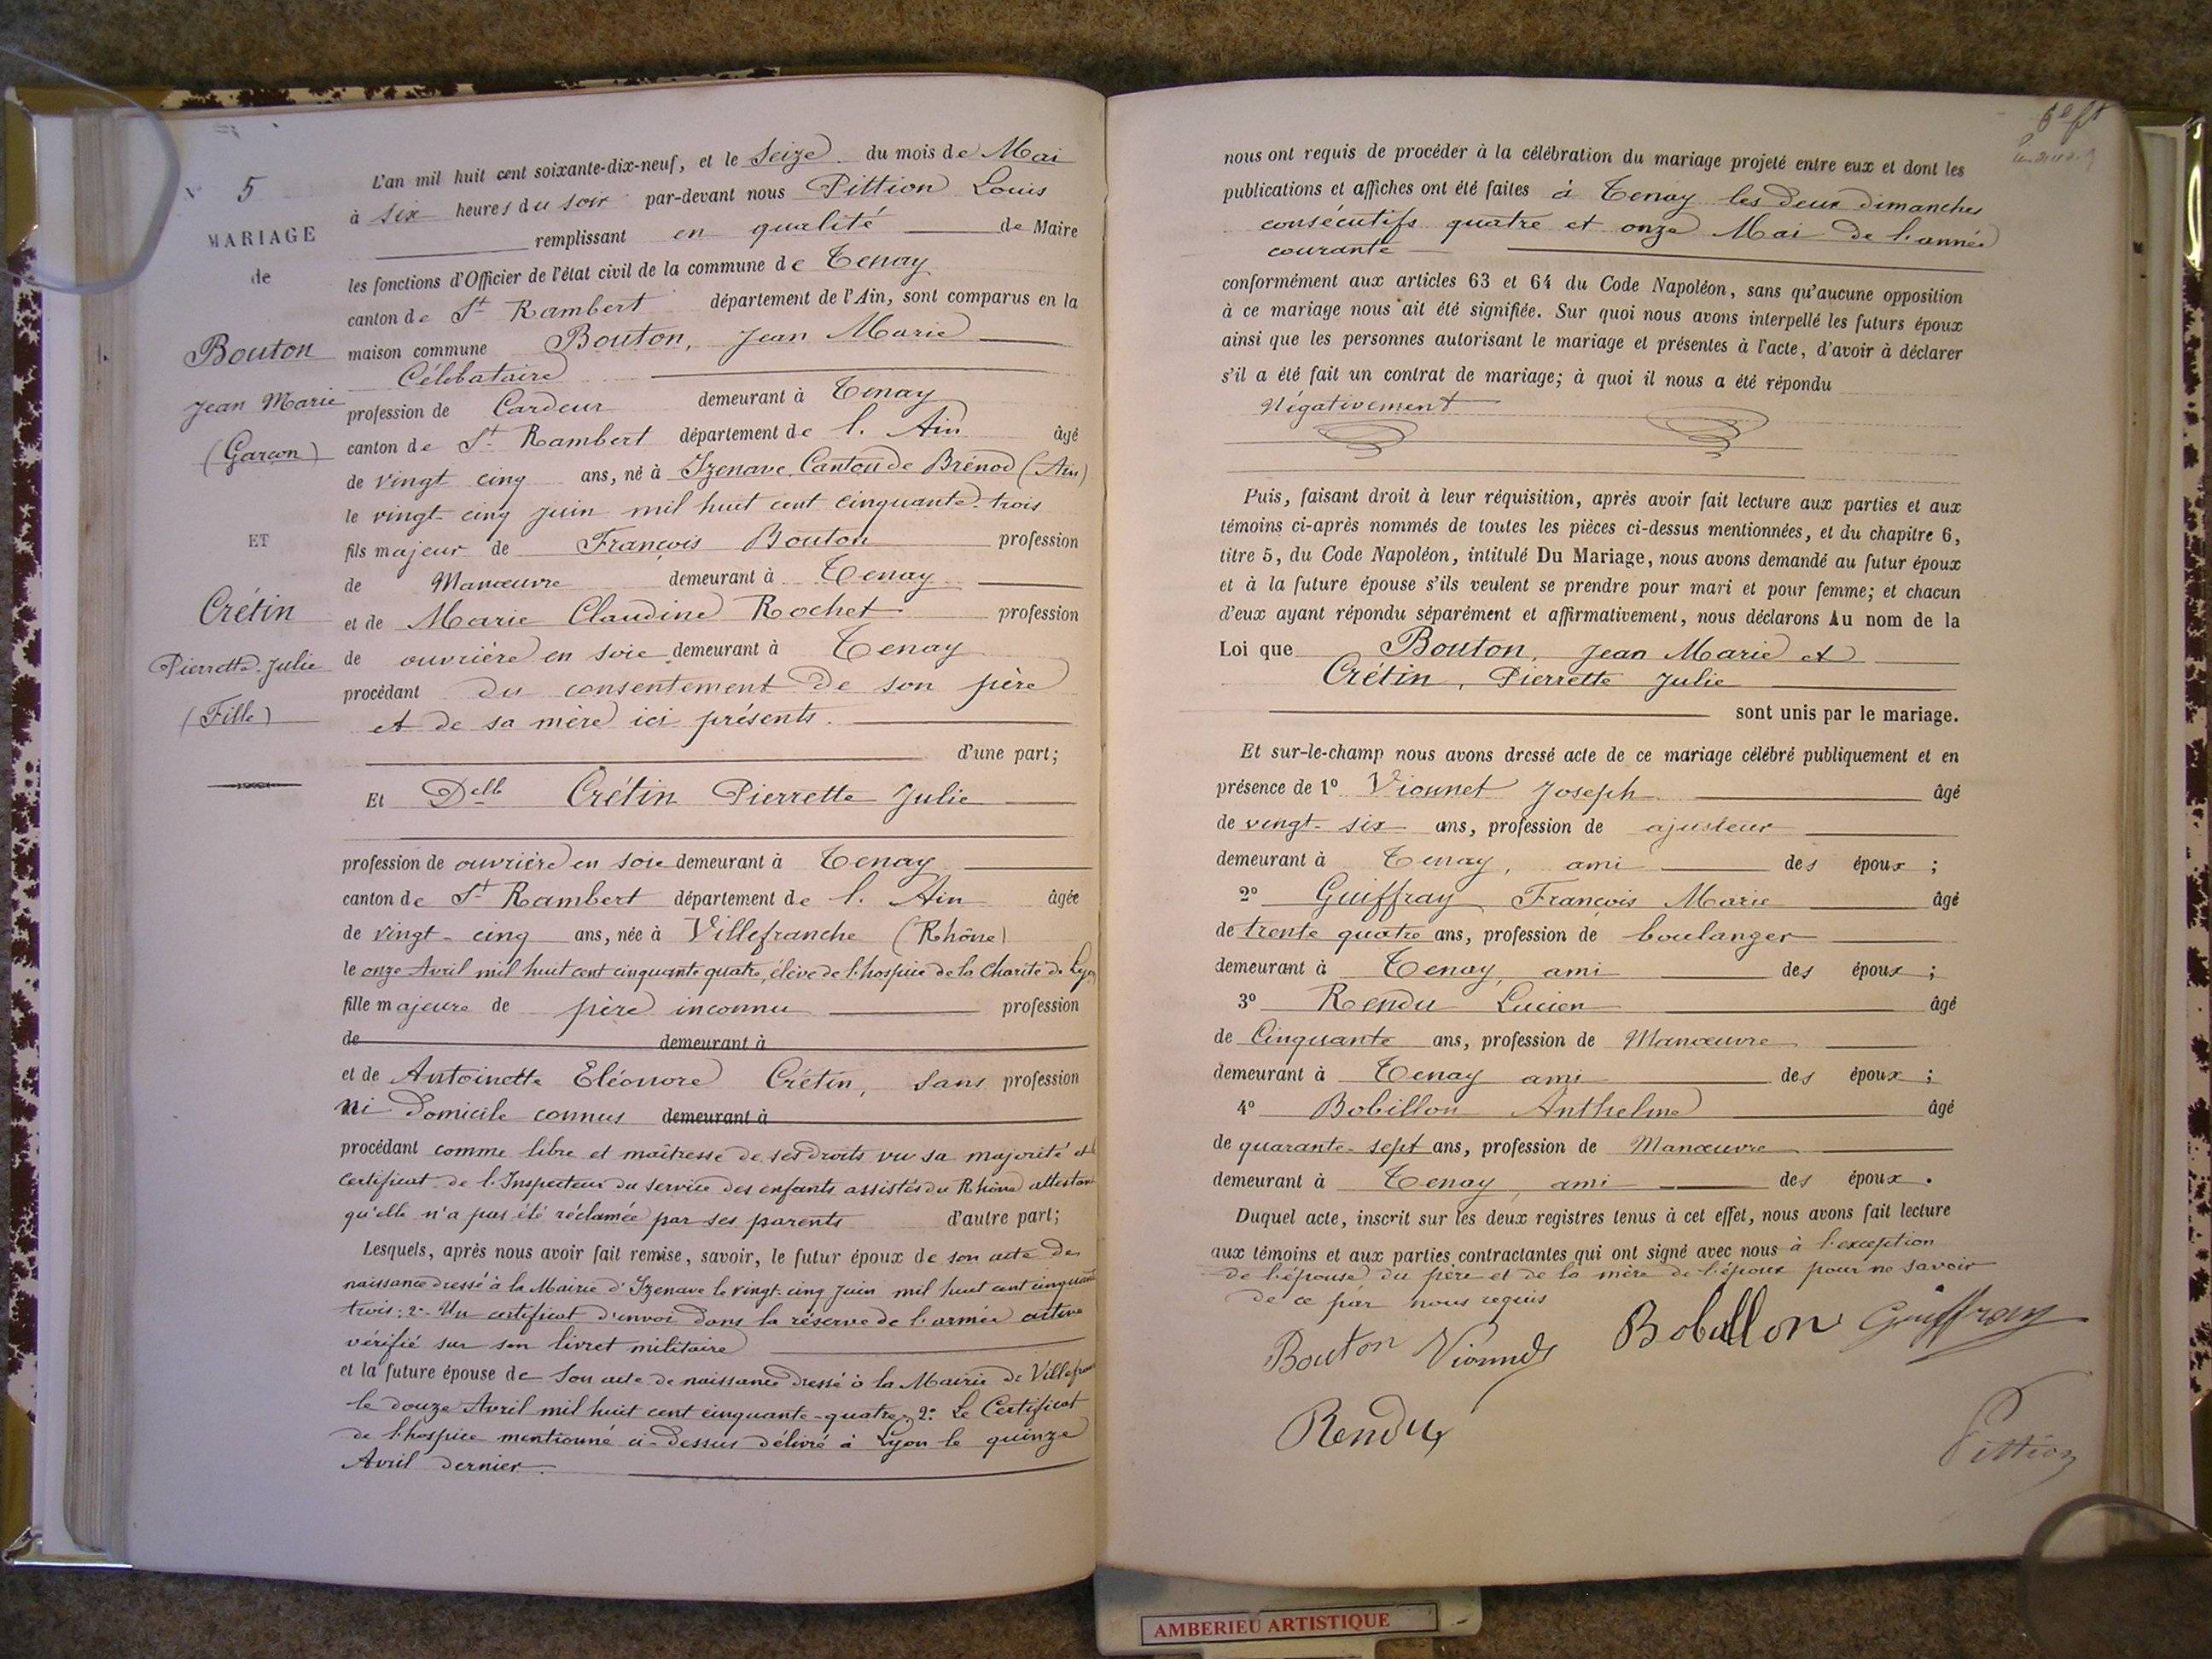 N° 5
MARIAGE
de
Bouton
Jean Marie
(Garçon)
ET
Crétin
Pierrette-Julie
(Fille)
L'an mil huit cent soixante-dix-neuf, et le Seize du mois de Mai
à six heures du soir par-devant nous Pittion Louis
remplissant en qualité de Maire
les fonctions d'Officier de l'état civil de la commune de Tenay
canton de St Rambert département de l'Ain, sont comparus en la
maison commune Bouton, Jean Marie
Célibataire
profession de Cardeur demeurant à Tenay
canton de St Rambert département de l'Ain âgé
de vingt cinq ans, né à Izenave, Canton de Brénod (Ain)
le vingt-cinq juin mil huit cent cinquante-trois
fils majeur de François Bouton profession
de Manœuvre demeurant à Tenay
et de Marie Claudine Rochet profession
de ouvrière en soie demeurant à Tenay
procédant du consentement de son père
et de sa mère ici présents.
d'une part;
Et Delle Crétin Pierrette Julie
profession de ouvrière en soie demeurant à Tenay
canton de St Rambert département de l'Ain âgée
de vingt-cinq ans, née à Villefranche (Rhône)
le onze Avril mil huit cent cinquante quatre, élève de l'hospice de la Charité de Lyon
fille majeure de père inconnu profession
de demeurant à
et de Antoinette Eléonore Crétin, sans profession
ni domicile connus demeurant à
procédant comme libre et maîtresse de ses droits vu sa majorité et
certificat de l'Inspecteur du service des enfants assistés du Rhône attestant
qu'elle n'a pas été réclamée par ses parents d'autre part;
Lesquels, après nous avoir fait remise, savoir, le futur époux de son acte de
naissance dressé à la Mairie d'Izenave le vingt-cinq juin mil huit cent cinquante
trois: 2° Un certificat d'envoi dans la réserve de l'armée active
vérifié sur son livret militaire
et la future épouse de son acte de naissance dressé à la Mairie de Villefranche
le douze Avril mil huit cent cinquante-quatre; 2° Le Certificat
de l'hospice mentionné ci-dessus délivré à Lyon le quinze
Avril dernier.
nous ont requis de procéder à la célébration du mariage projeté entre eux et dont les
publications et affiches ont été faites à Tenay les deux dimanches
consécutifs quatre et onze Mai de l'année
courante
conformément aux articles 63 et 64 du Code Napoléon, sans qu'aucune opposition
à ce mariage nous ait été signifiée. Sur quoi nous avons interpellé les futurs époux
ainsi que les personnes autorisant le mariage et présentes à l'acte, d'avoir à déclarer
s'il a été fait un contrat de mariage; à quoi il nous a été répondu
Négativement
Puis, faisant droit à leur réquisition, après avoir fait lecture aux parties et aux
témoins ci-après nommés de toutes les pièces ci-dessus mentionnées, et du chapitre 6,
titre 5, du Code Napoléon, intitulé Du Mariage, nous avons demandé au futur époux
et à la future épouse s'ils veulent se prendre pour mari et pour femme; et chacun
d'eux ayant répondu séparément et affirmativement, nous déclarons Au nom de la
Loi que Bouton, Jean Marie et
Crétin, Pierrette Julie
sont unis par le mariage.
Et sur-le-champ nous avons dressé acte de ce mariage célébré publiquement et en
présence de 1° Vionnet Joseph âgé
de vingt-six ans, profession de ajusteur
demeurant à Tenay, ami des époux;
2° Guiffray François Marie âgé
de trente quatre ans, profession de boulanger
demeurant à Tenay, ami des époux;
3° Rendu Lucien âgé
de Cinquante ans, profession de Manœuvre
demeurant à Tenay ami des époux;
4° Bobillon Anthelme âgé
de quarante-sept ans, profession de Manœuvre
demeurant à Tenay, ami des époux.
Duquel acte, inscrit sur les deux registres tenus à cet effet, nous avons fait lecture
aux témoins et aux parties contractantes qui ont signé avec nous à l'exception
de l'épouse du père et de la mère de l'époux pour ne savoir
de ce par nous requis
Bouton Vionnet Bobillon Guiffray
Rendu
Pittion
AMBERIEU ARTISTIQUE